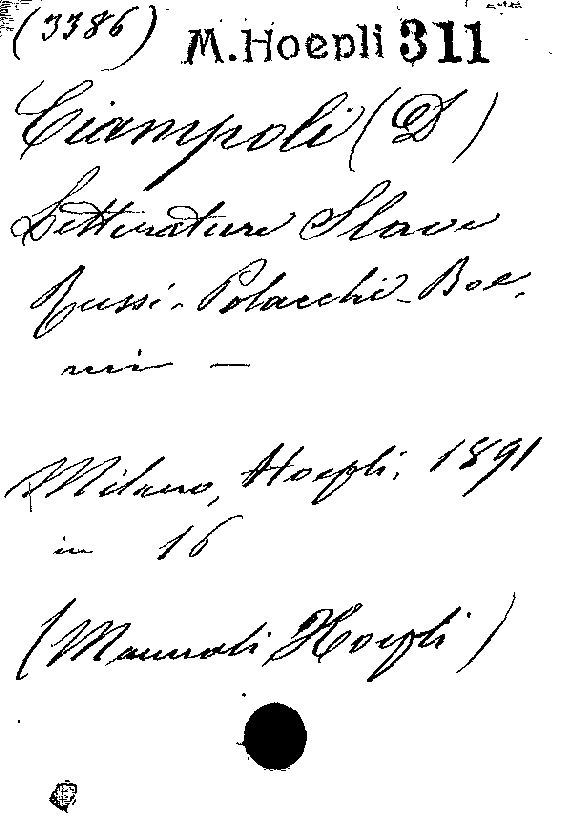 (3386) M. Hoepli 311
Ciampoli (D)
Letterature Slave
Russi - Polacchi - Boe-
mi —
Milano, Hoepli, 1891
in 16
(Manuali Hoepli)